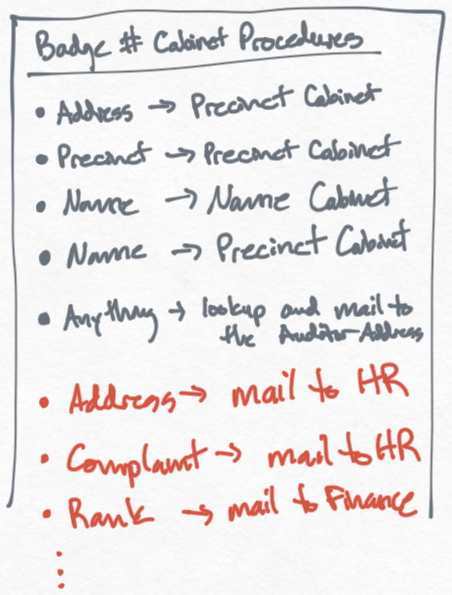 Badge # Cabinet Procedures
• Address → Precinct Cabinet
• Precinct → Precinct Cabinet
• Name → Name Cabinet
• Name → Precinct Cabinet
• Anything → lookup and mail to
the Auditor Address
• Address → mail to HR
• Complaint → mail to HR
• Rank → mail to Finance
⋮